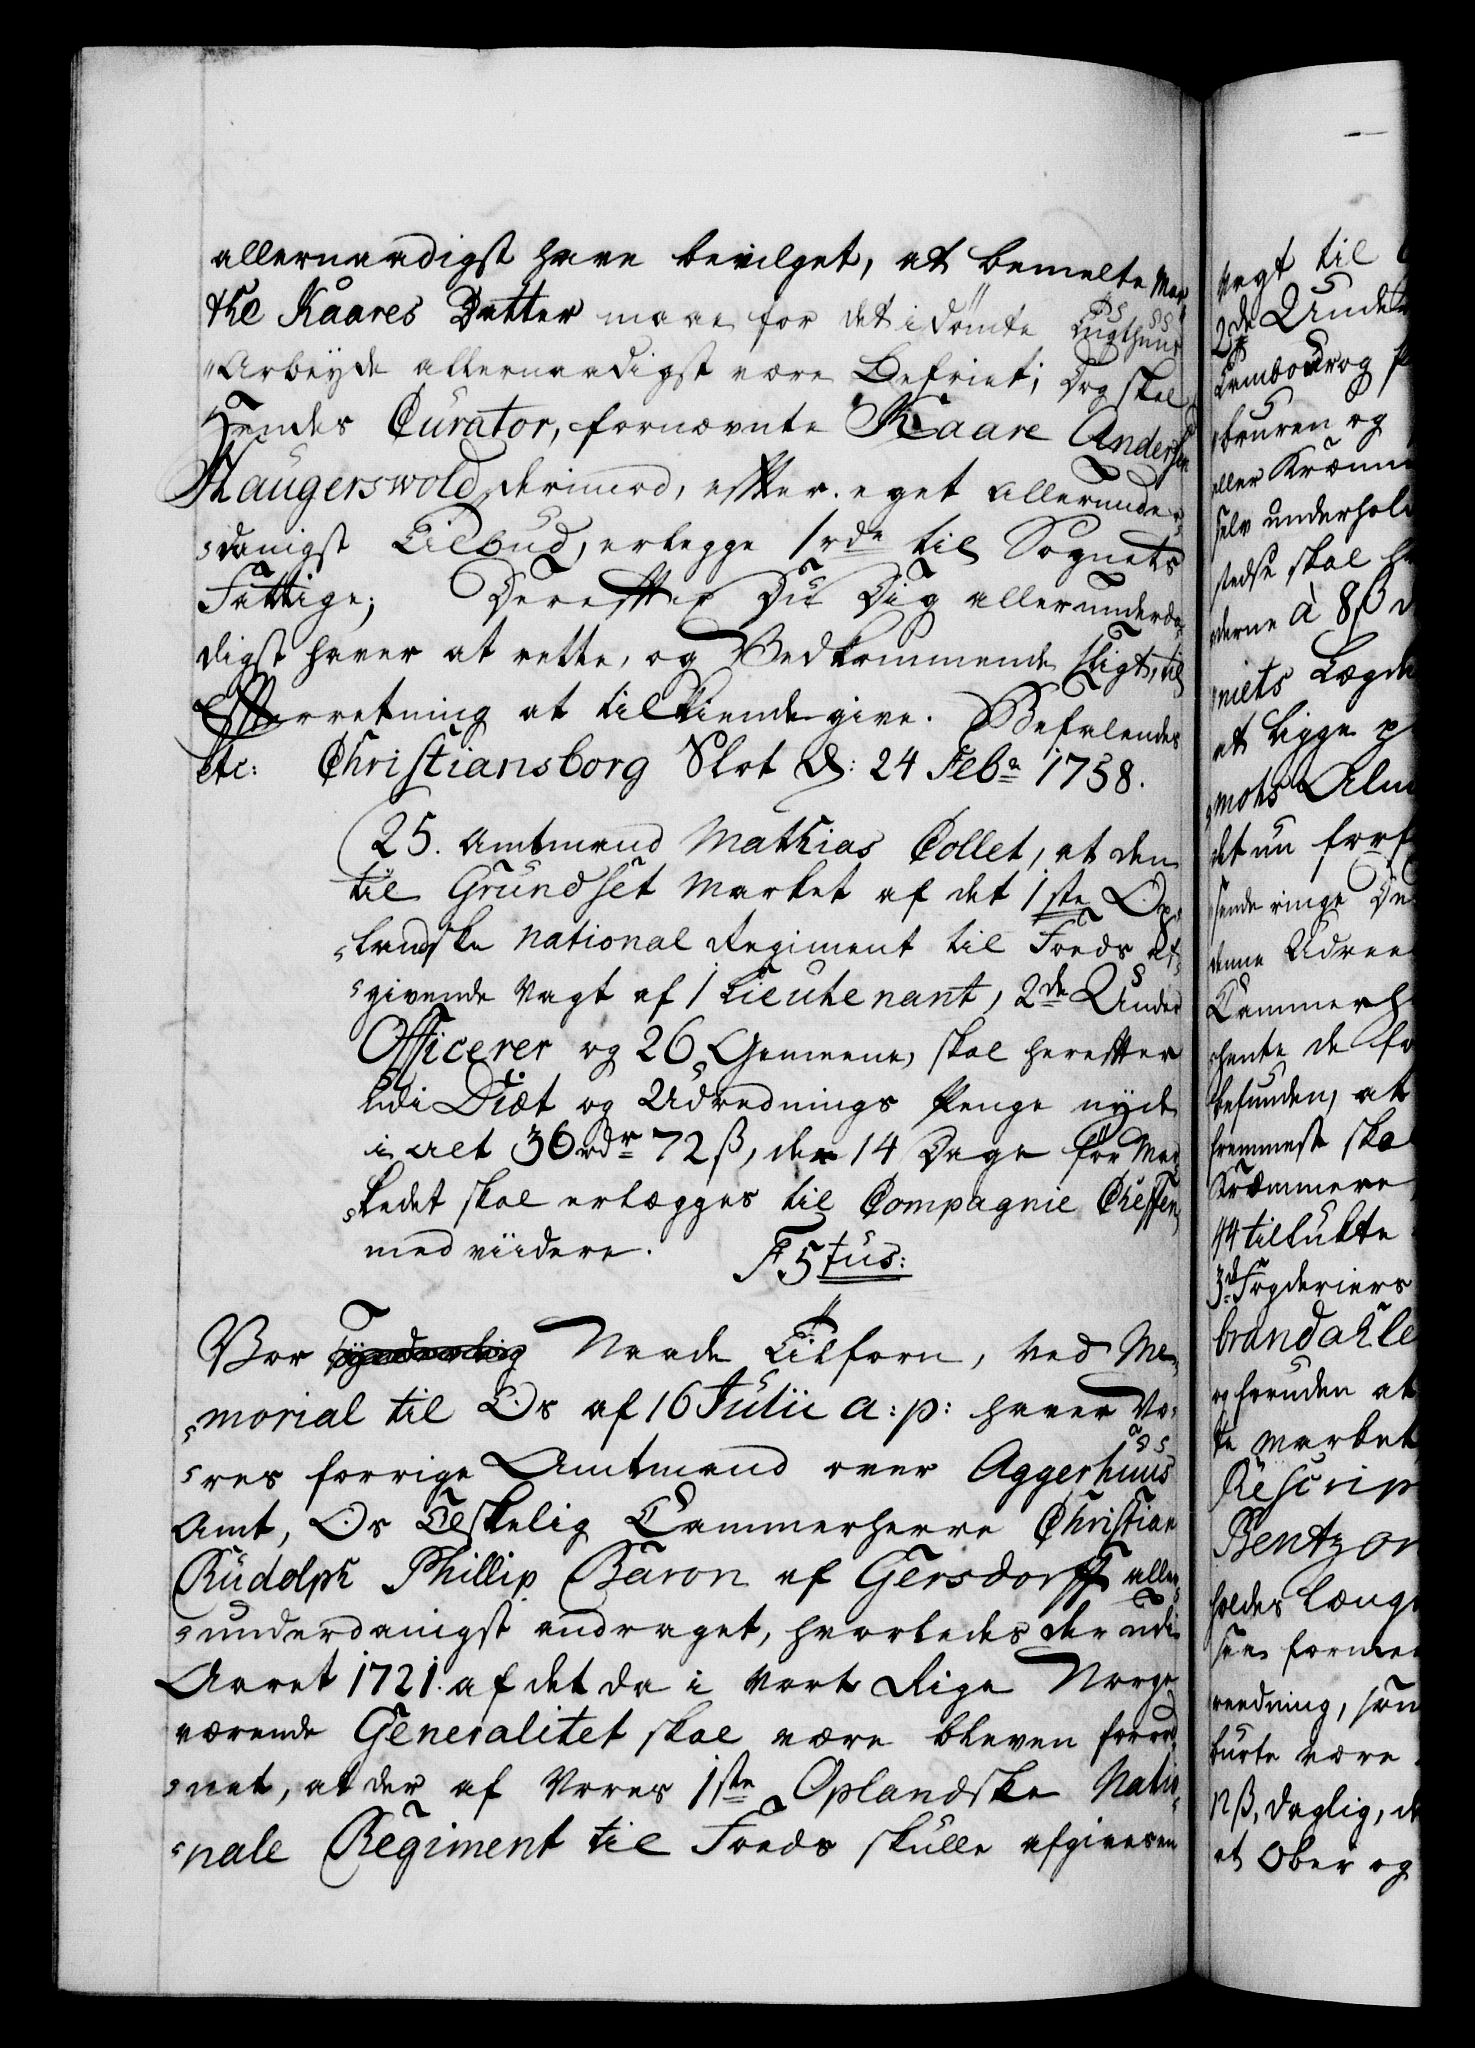 allernaadigst have bevilget, at bemelte Mar-
the Kaares Datter maae for det idömte Tugthuus
"Arbeyde allernaadigst være Befriet; Dog skal
Hendes Curator, fornævnte Kaare Andersen
Haugerswold derimod, efter eget allerunder-
danigst Tilbud, erlegge 1 rdr til Sognets
Fattige; Derefter Du Dig allerunderda-
digst haver at rette, og Vedkommende sligt, til
Efterretning at tilkiende give. Befalendes
etc: Christiansborg Slot d: 24 Febr 1758.
25. Amtmand Mathias Collet, at den
til Grundset Market af det 1ste Op-
landske national Regiment til Foeds af-
givende Vagt af 1 Lieutenant, 2de Under
Officerer og 26 Gemeene, skal herefter
udi Diæt og Udrednings Penge nyde
i alt 36 rdr 72 ß, der 14 Dage för Mar-
kedet skal erlægges til Compagnie Cheffen
med viidere. F 5tus:
Vor synderlig Naade Tilforn, ved Me-
morial til Os af 16 Julii a: p: haver Vo-
res forrige Amtmand over Aggerhuus
Amt, Os Elskelig Cammerherre Christian
Rudolph Phillip Baron af Gersdorff aller-
underdanigst andraget, hvorledes der udi
Aaret 1721. af det da i Vort Rige Norge
værende Generalitet skal være bleven forord-
net, at der af Vores 1ste Oplandske Natio-
nale Regiment til Foeds skulle afgives en
Vagt til
2de Under
Tambour og
bruren og
aller Kræm
selv underhold
stedse skal
derne à 8 ß
mets Lægd
at ligge p
mods Alm
det nu forf
sende ringe
denne Udree
Cammerh
hente de
befunden, at
fremmest skal
Kræmmere
44 tillukte
3de Fogderiers
brandakle
og foruden at
te market
Rescrip
Bentzon
holdes længe
formee
reedning,
burte være
12 ß, daglig,
et Ober og